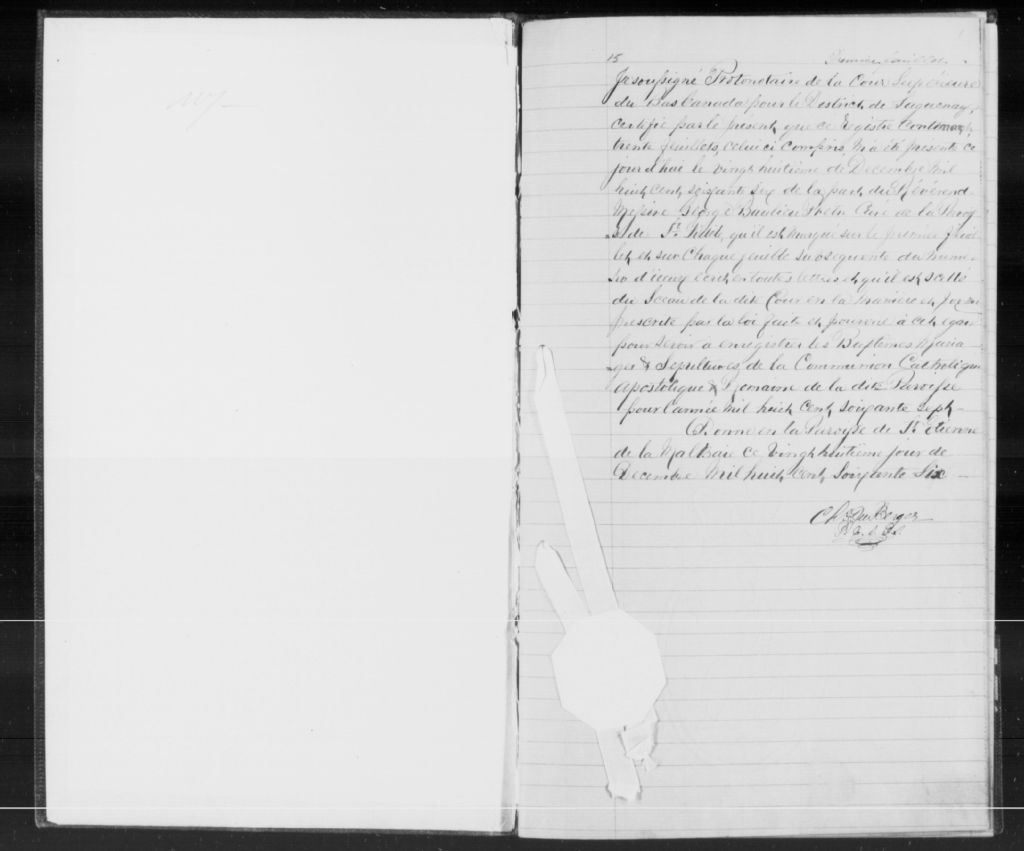 15 Premier feuillet.
Je soussigné Protonotaire de la Cour Supérieure
du Bas Canada pour le District de Saguenay,
certifie par le présent, que ce Registre contenant
trente feuillets, celui ci compris, m'a été présenté ce
jourd'hui le vingt huitième de Décembre Mil
huit cent soixante six de la part du Révérend
Messire George Baulieu Ptre Curé de la Parois
se de St. qu'il est marqué sur le premier feuil
let et sur chaque feuille subséquente du numé
ro d'iceux écrit en toutes lettres et qu'il est scellé
du Sceau de la dite Cour en la manière et forme
prescrite par la loi faite et pourvue à cet égard
pour servir a enregistrer les Baptêmes Maria
ges & Sépultures de la Communion Catholique
Apostolique & Romaine de la dite Paroisse
pour l'année mil huit cent soixante sept
Donné en la Paroisse de St. Etienne
de la Malbaie ce vingt huitième jour de
Décembre Mil huit cent soixante six
Chs DuBerger
P. C. S.